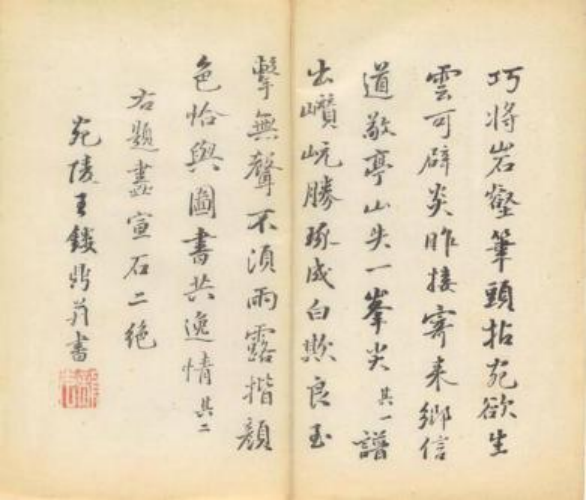 巧將岩壑筆頭拈宛欲生
雲可辟炎昨接寄來鄉信
道敬亭山尖一峯尖其一譜
出巑岏勝琢成白欺良玉
擊無聲不須雨露揩顏
色恰與圖書共逸情其二
右題畫宣石二絕
宛陵王鏤鼎并書